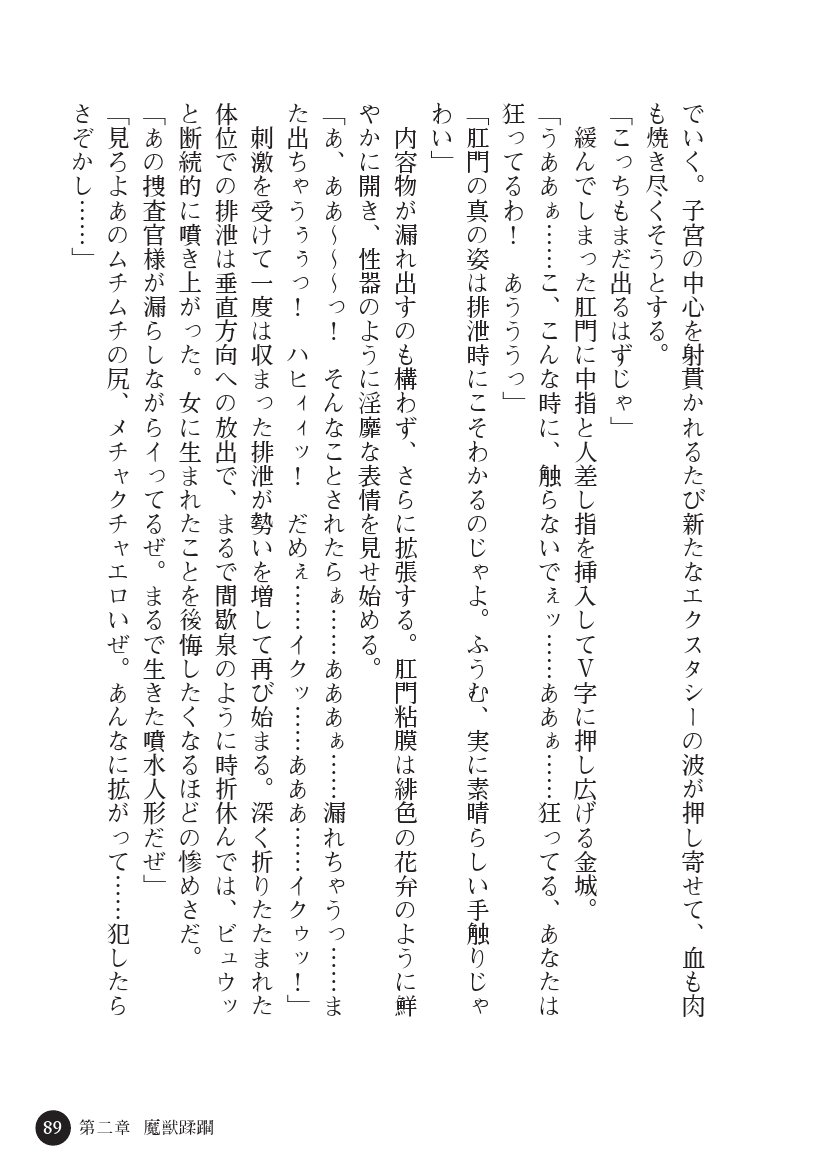 でいく。子宮の中心を射貫かれるたび新たなエクスタシーの波が押し寄せて、血も肉
も焼き尽くそうとする。
「こっちもまだ出るはずじゃ」
　緩んでしまった肛門に中指と人差し指を挿入してＶ字に押し広げる金城。
「うああぁ……こ、こんな時に、触らないでぇッ……ああぁ……狂ってる、あなたは
狂ってるわ！　あうううっ」
「肛門の真の姿は排泄時にこそわかるのじゃよ。ふうむ、実に素晴らしい手触りじゃ
わい」
　内容物が漏れ出すのも構わず、さらに拡張する。肛門粘膜は緋色の花弁のように鮮
やかに開き、性器のように淫靡な表情を見せ始める。
「あ、ああ～～～っ！　そんなことされたらぁ……あああぁ……漏れちゃうっ……ま
た出ちゃうぅぅっ！　ハヒィィッ！　だめぇ……イクッ……あああ……イクゥッ！」
　刺激を受けて一度は収まった排泄が勢いを増して再び始まる。深く折りたたまれた
体位での排泄は垂直方向への放出で、まるで間歇泉のように時折休んでは、ビュウッ
と断続的に噴き上がった。女に生まれたことを後悔したくなるほどの惨めさだ。
「あの捜査官様が漏らしながらイってるぜ。まるで生きた噴水人形だぜ」
「見ろよあのムチムチの尻、メチャクチャエロいぜ。あんなに拡がって……犯したら
さぞかし……」
89 第二章　魔獣蹂躙